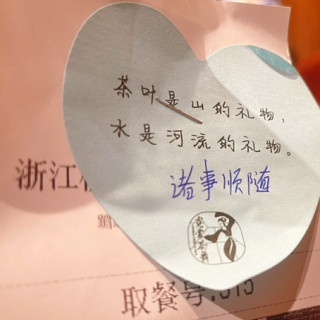 茶叶是山的礼物，
水是河流的礼物。
诸事顺随
浙江
取餐号:515